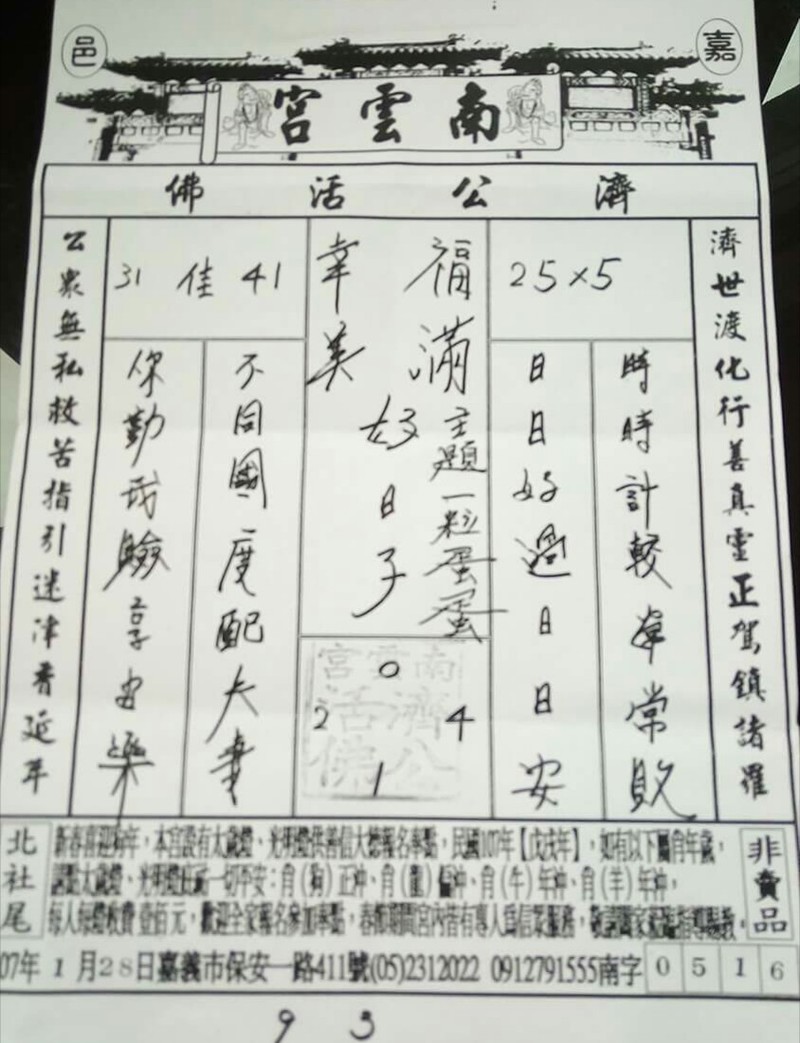 嘉邑
南雲宮
濟公活佛
濟世渡化行善真靈正駕鎮諸羅
25×5
時時計較常敗
日日好過日日安
福滿
幸美
好日子
主題一粒蛋蛋
41佳31
不同國度配夫妻
你勤我險享安樂
公眾無私救苦指引迷津壽延年
南雲宮
濟公活佛
0
2 4
1
北社尾
新春喜迎狗年，本宮設有太歲燈、光明燈供善信大德報名奉點，民國107年【戊戌年】，如有以下屬肖年歲，
請點太歲燈、光明燈祈一切平安：肖(狗)正沖、肖(龍)偏沖、肖(牛)年沖、肖(羊)年沖，
每人每燈收費壹佰元，歡迎全家報名參加奉點，春節期間宮內皆有專人為信眾服務，敬請闔家蒞臨指導賜教。
非賣品
07年1月28日嘉義市保安一路411號(05)2312022 0912791555南字0516
9 3